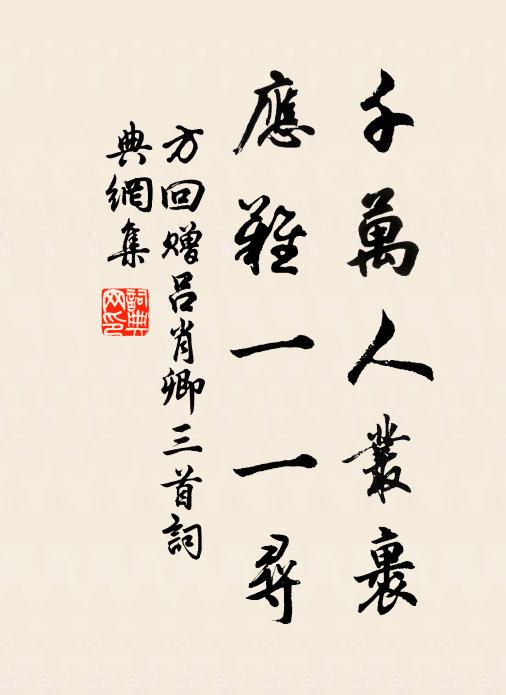 千萬人叢裏
應難一一尋
方回贈呂肖卿三首詞
典網集
詞典
网印